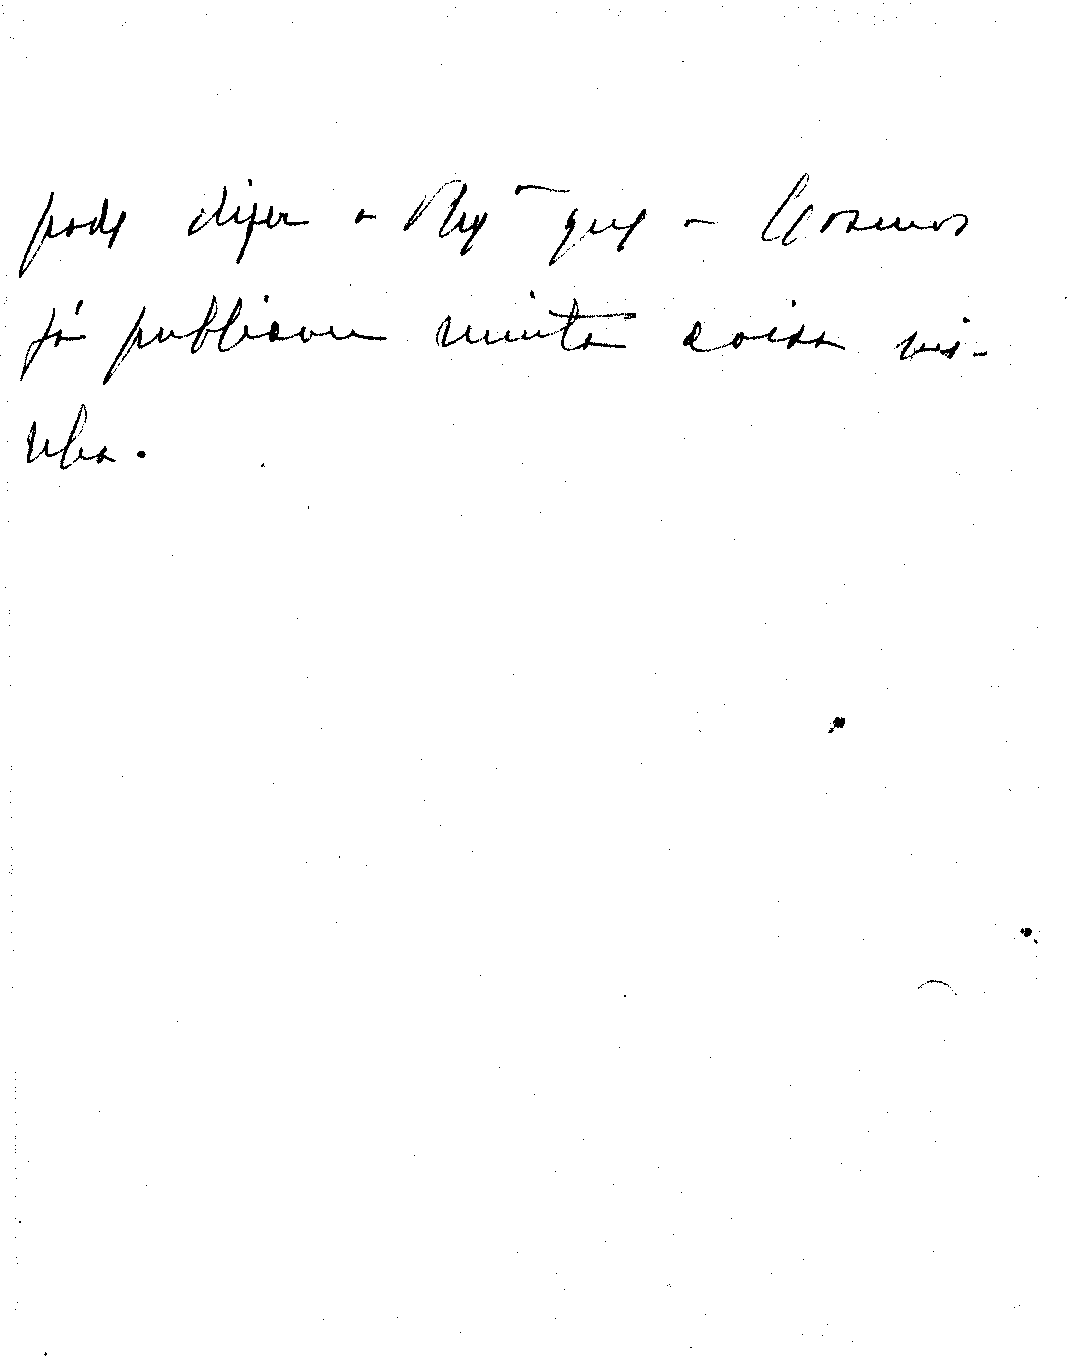 pode dizer a que a Cosmos
já publicou muita coisa mi-
nha.